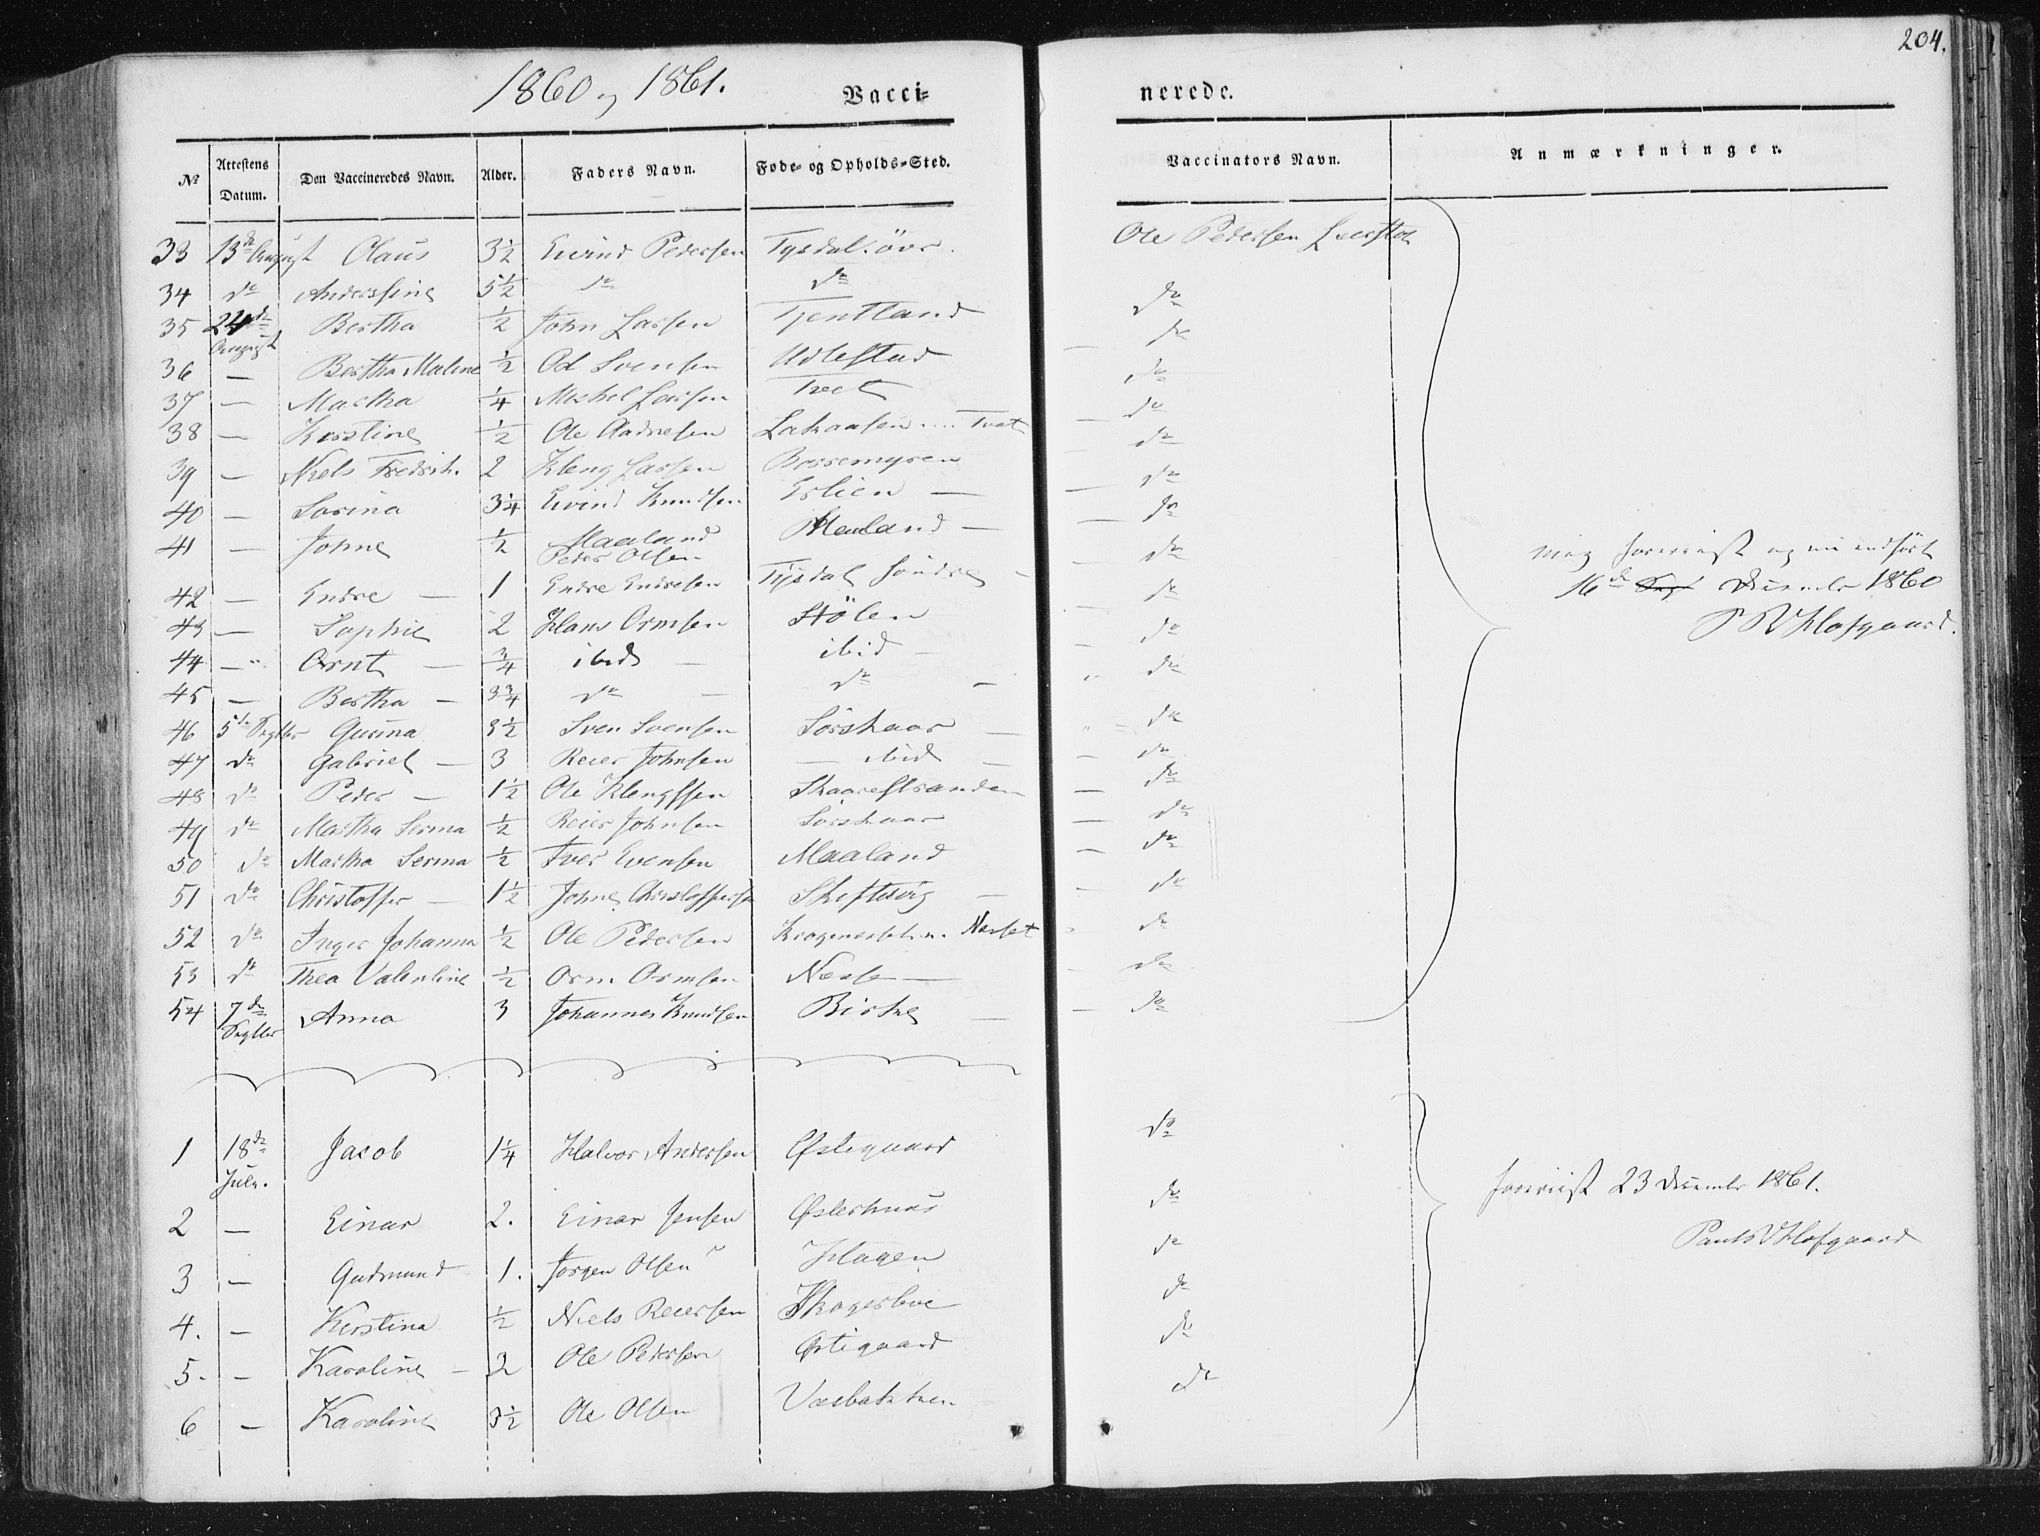 204.
1860 og 1861.
Vacci= nerede.
No Attestens Datum. Den Vaccineredes Navn. Alder. Faders Navn. Føde- og Opholds-Sted. Vaccinators Navn. Anmærkninger.
33 13de August Claus 3½ Eivind Pedersen Tysdal övr. Ole Pedersen
34 do Anderssine 5½ do do do
35 24de August Bertha ½ John Larsen Tjentland do
36 — Bertha Malene ½ Od Svensen Udlestad do
37 — Martha ¼ Larsen do
38 — Kirstine ½ Ole Aadnesen do
39 — Niels Fredrik. 2 Kleng Larsen Berremyren do
40 — Sorina 3¼ Eivind Knudsen Erlien — do
41 — Johne ½ Maaland Peder Olsen — do
42 — Endre — 1 Endre Endresen Tysdal söndre — do
43 — Sophie 2 Hans Ormsen Stölen do
44 — Ornt — ¾ ibid — ibid — do
45 — Bertha — 3¾ do — do — do
46 5te Septbr Gurina 3½ Sven Svensen Sörskaar — do
47 do Gabriel — 3 Reier Johnsen — ibid — do
48 do Peder — 1½ Ole Klengssen Skaarestranden do
49 do Martha Serina ½ Reier Johnsen Sörskaar do
50 do Martha Serina ½ Iver Evensen Maaland do
51 do Christoffer — 1½ Johne Christoffersen Skiftevig — do
52 do Inger Johanna ½ Ole Pedersen Nesset do
53 do Thea Valentine ½ Orm Ormsen — do
54 7de Septbr Anna 3 Johannes Knudsen Birke — do
og nu indfört
16de December 1860
P V Hofgaard.
1 18de July. Jacob 1¼ Halvor Andersen Østegaard do
2 — Einar 2. Einar Jensen Østerhuus do
3 — Gudmund 1. Jörgen Olsen Hagen do
4. — Kirstina ½ Niels Reiersen do
5. — Karoline — 2 Ole Pedersen Østigaard do
6 — Karoline 3½ Ole Olsen Vasbakken do
foreviist 23 December 1861.
Hofgaard